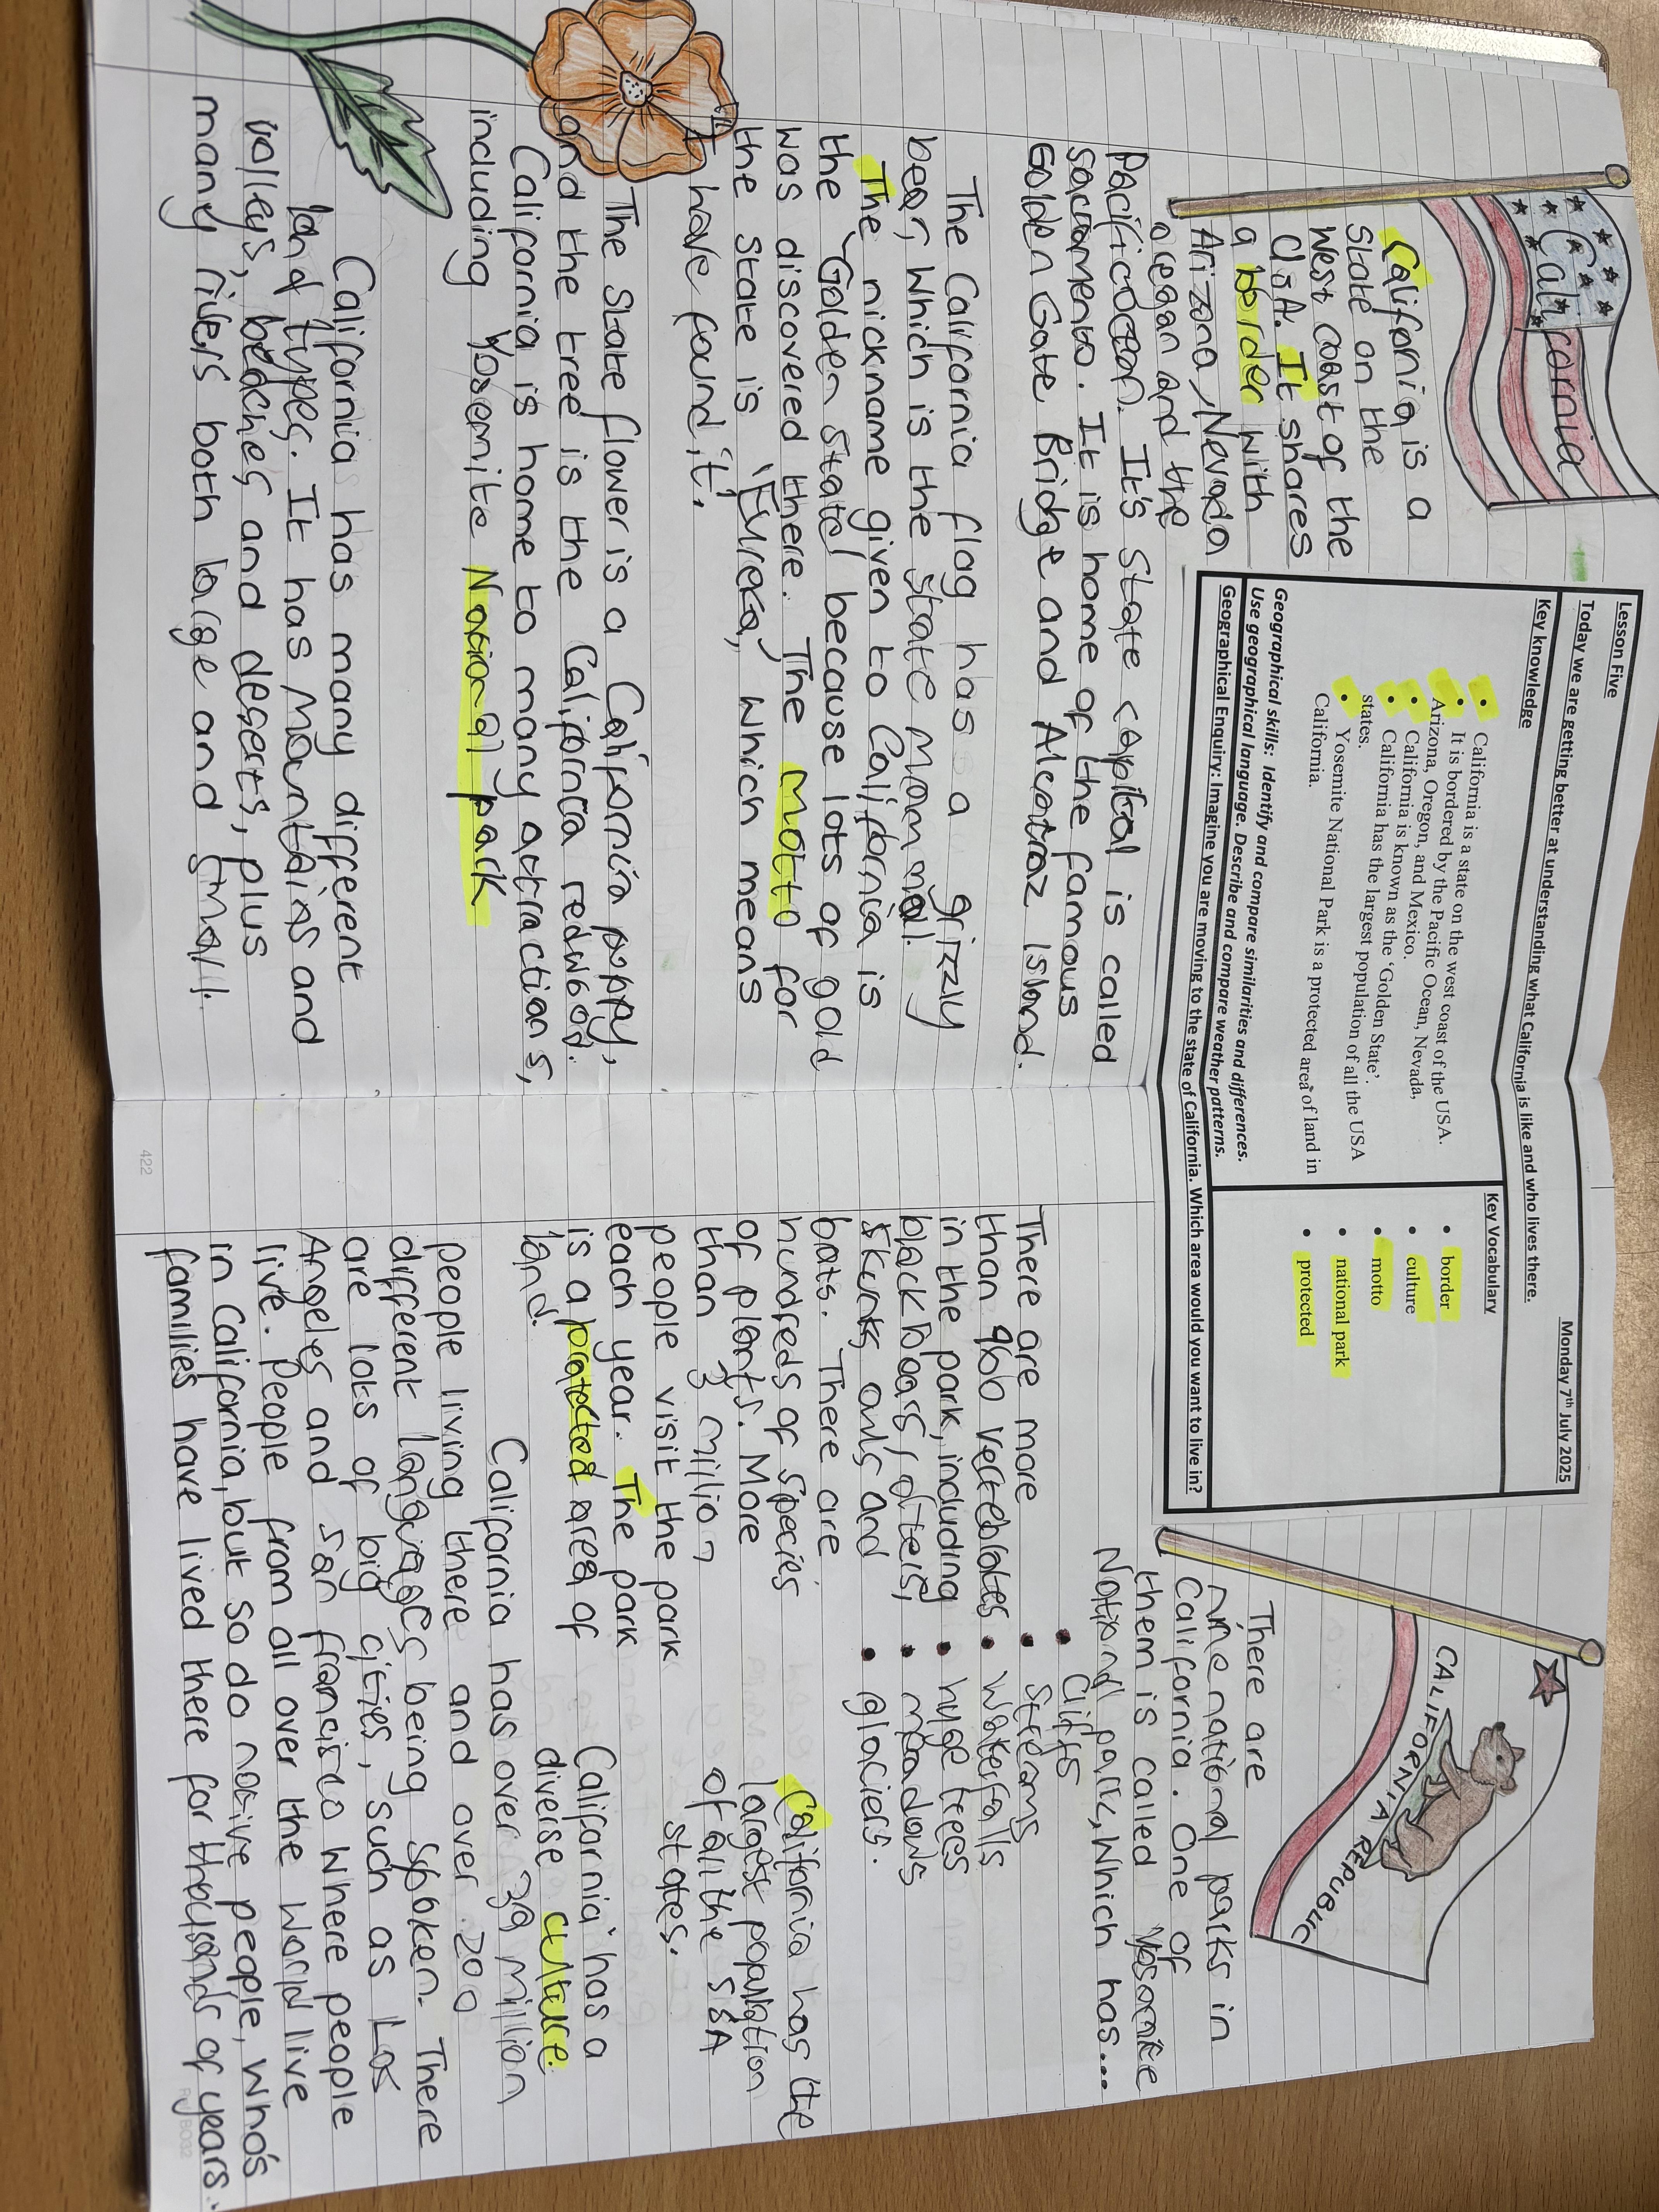 Lesson Five
Monday 7th July 2025
Today we are getting better at understanding what California is like and who lives there.
Key knowledge
• California is a state on the west coast of the USA.
• It is bordered by the Pacific Ocean, Nevada,
Arizona, Oregon, and Mexico.
• California is known as the ‘Golden State’.
• California has the largest population of all the USA
states.
• Yosemite National Park is a protected area of land in
California.
Key Vocabulary
• border
• culture
• motto
• national park
• protected
Geographical skills: Identify and compare similarities and differences.
Use geographical language. Describe and compare weather patterns.
Geographical Enquiry: Imagine you are moving to the state of California. Which area would you want to live in?
California
California is a
state on the
west coast of the
USA. It shares
a border with
Arizona, Nevada
oregan and the
Pacific Ocean. It's state capital is called
sacramento. It is home of the famous
Golden Gate Bridge and Alcatraz Island.
The California flag has a grizzly
bear, which is the state mammal.
The nickname given to California is
the 'Golden State' because lots of gold
was discovered there. The motto for
the state is 'Eureka,' which means
"I have found it'.
The state flower is a California poppy,
and the tree is the California redwood.
California is home to many attractions,
including Yosemite National park
California has many different
land types. It has mountains and
valleys, beaches and deserts, plus
many rivers both large and small.
422
CALIFORNIA REPUBLIC
There are
nine national parks in
California. One of
them is called Yosamite
National park, which has...
• cliffs
• streams
• waterfalls
• huge trees
• meadows
• glaciers.
There are more
than 960 verteblates
in the park, including
black boars, otters,
skunks owls and
bats. There are
hundreds of species
of plants. More
than 3 million
people visit the park
each year. The park
is a protected area of
land.
California has the
largest population
of all the USA
states.
California has a
diverse culture.
California has over 39 million
people living there and over 200
different languages being spoken. There
are lots of big cities, such as Los
Angeles and san francisco where people
live. People from all over the world live
in California, but so do native people, who's
families have lived there for thousands of years.